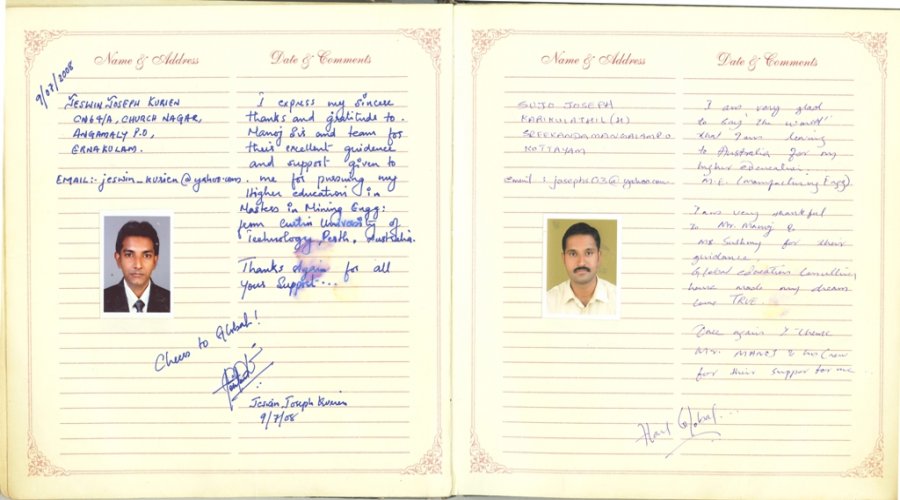 Name & Address
Date & Comments
9/07/2008
JESWIN JOSEPH KURIEN
CN 64/A, CHURCH NAGAR,
ANGAMALY P.O,
ERNAKULAM.
EMAIL:- jeswin_kurien@yahoo.com.
I express my sincere
thanks and gratitude to
Manoj Sir and team for
their excellent guidence
and support given to
me for pursuing my
Higher education in
Masters in Mining Engg:
from Curtin University of
Technology, Perth, Australia.
Thanks Again for all
your Support...
Cheers to Global!
Jeswin Joseph Kurien
9/7/08
Name & Address
Date & Comments
SUJO JOSEPH
KARIKULATHIL (H)
SREEKANDAMANGALAM P.O
KOTTAYAM
email : josephs03@yahoo.com
I am very glad
to say
that I am leaving
to Australia for my
higher education.
M.E. (Manufacturing Engg).
I am very thankful
to Mr. Manoj &
for their
guidance.
Global education Consulting
house made my dream
come TRUE.
Once again I thank
Mr. MANOJ & his Crew
for their support to me...
Global...